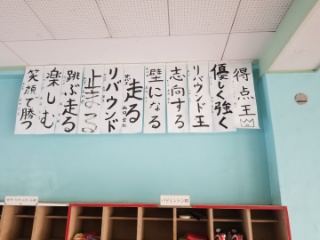 得点王
優しく強く
リバウンド王
志向する
壁になる
走る
リバウンド
止まる
跳ぶ走る
楽しむ
笑顔で勝つ
バドミントン部